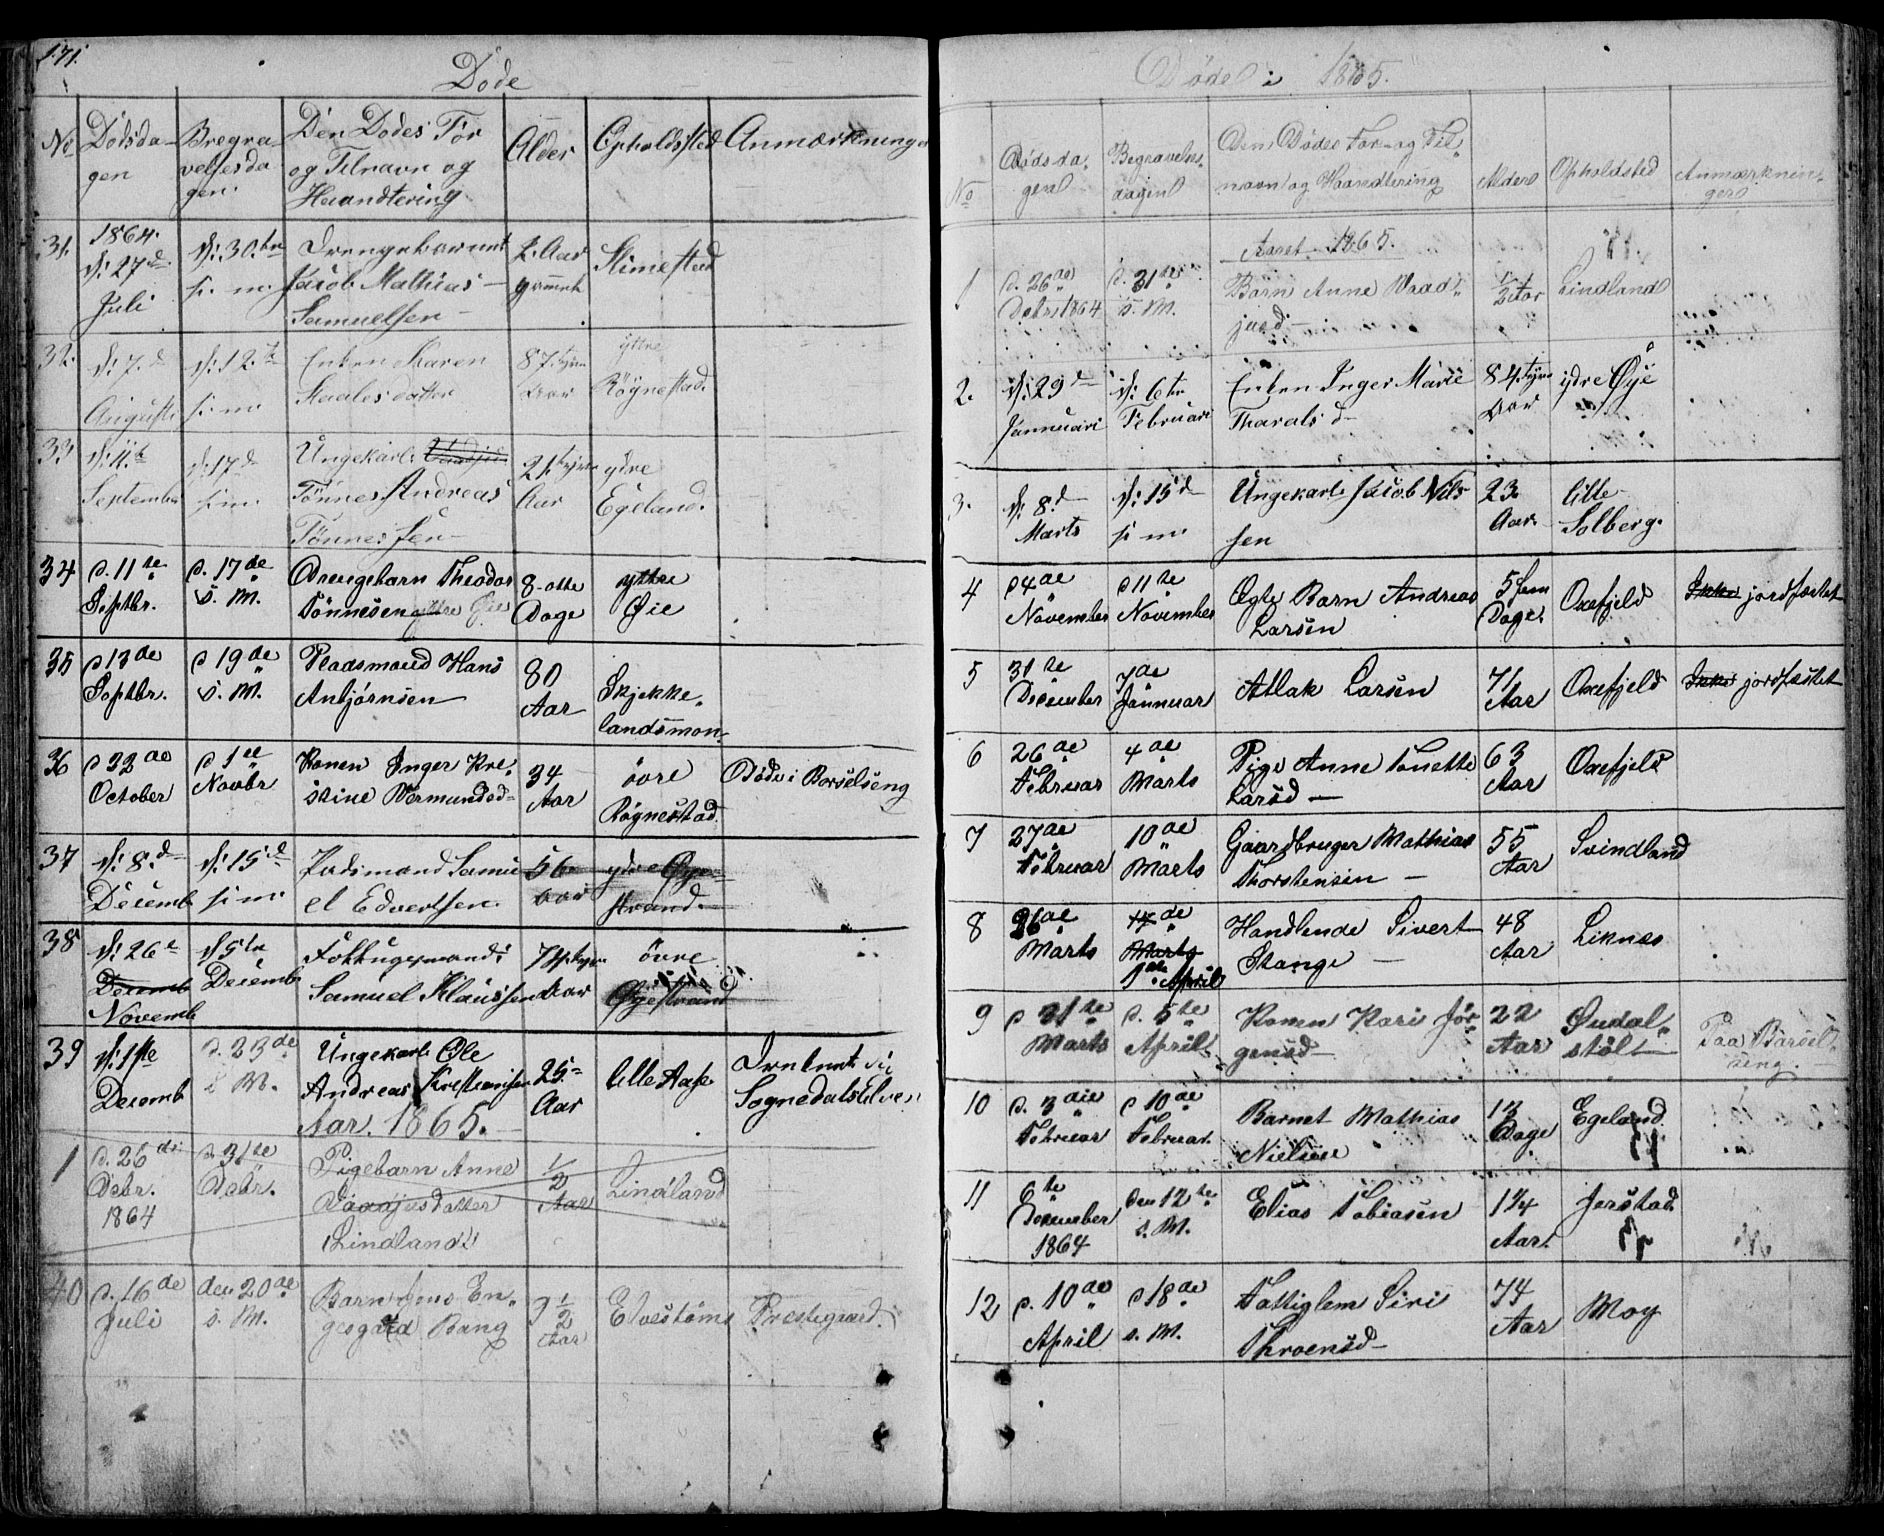 171.
Døde
No
Dødsda-
gen
Bregra-
velsesda
gen.
Den Dødes For
og Tilnavn og
Haandtering
Alder
Opholdsted
Anmærkninger
31.
1864.
d: 27d
Juli
d: 30.te
s. m.
Drengebarnet
Jacob Mathias
Samuelsen
2. Aar
gammel
Stimestad
32.
d: 7.d
Augusti
d: 12.te
s: m:
Enken Karen
Staalesdatter
87.
Aar
yttre
Røgnestad.
33
d: 11.te
September
d: 17d
s: m.
Ungekarl:
Tønnes Andreas
Tønnessen
21.
Aar
ydre
Egeland.
34
d. 11te
Septbr.
d. 17de
s. M.
Drengebarn Theodor
Tønnesen yttre Øie
8-otte
Dage
yttre
Øie
35
d 13de
Septbr.
d 19de
s. M.
Pladsmand Hans
Anbjørnsen
80
Aar
Skjekke-
landsmon.
36
d 22de
October
d 1ste
Novbr
Konen Inger Kri-
stine Vermundsd-
34
Aar
övre
Røgnestad.
Døde i Barselseng
37
d: 8.d
Decemb
d: 15d
s: m:
Pladsmand Samu
el Edvertsen.
56-
Aar
ydre Øye-
strand.
38
d: 26e
Decemb
Novemb
d 5te
Decemb
Samuel Klaussen
74.
Aar
övre
Øyestrand
39
d: 1ste
Decemb
d. 23de
s M.
Ungekarl: Ole
Andreas Kristiansen
25-
Aar
Lille Aase
Druknet i
Sognedalselven
Aar. 1865.
1
d. 26de
Debr.
1864
d. 31te
Debr.
Pigebarn Anne
Vaadjusdatter
Lindland
1/2
Aar
Lindland
40
d. 16de
Juli
den 20de
s. M.
Barn Jens En-
gesgaard Bang
9 1/2
Aar
Elvestøms Prestegaard.
Døde i 1865.
No
Dødsda-
gen
Begravelses-
dagen
Den Dødes For- og Til-
navn og Haandtering
Alder
Opholdsted
Anmærknin-
ger
Aaret 1865.
1
d. 26de
Debr 1864
d. 31te
s. M.
Barn Anne Vaad-
jusd-
1/2 Aar
Lindland
2.
d: 29d
Jannuari
d: 6te
Februari
Enken Inger Marie
Tharalsd-
84.
Aar
ydre Øye
3.
d: 8.d
Marts
d: 15d
s: m:
Ungekarl: Jacob Nils
sen
23.
Aar.
Lille-
Solberg.
4
d 4de
November
d 11te
November
Ægte Barn Andreas
Larsen
5 fem
Dage
Oxefjeld
Ikke jordfæstet
5
31te
December
7de
Jannuar
Atlak Larsen
71
Aar
Oxefjeld
Ikke jordfæstet
6
26de
Februar
4de
Marts
Pige Anne Tonette
Larsd-
63
Aar
Oxefjeld
7
27de
Februar
10de
Marts
Gaardbruger Mathias
Thorstensen
55
Aar
Svindland
8
26de
Marts
17de
Marts
1ste April
Handlende Sivert
Stange
48
Aar
Liknes
9
d 21te
Marts
d. 5te
April
Konen Kari Jør-
gensd-
22
Aar
Øudal-
støl
Paa Barsel-
seng.
10
d. 3die
Februar
d 10de
Februar
Barnet Mathias
Nielsen
13
Dage
Egeland
11
6te
December
1864
den 12te
s. M.
Elias Tobiasen
1 1/4
Aar.
Jerstad
12
d. 10de
April
d 18de
s. M.
Fattiglem Siri
Throensd-
74
Aar
Moy